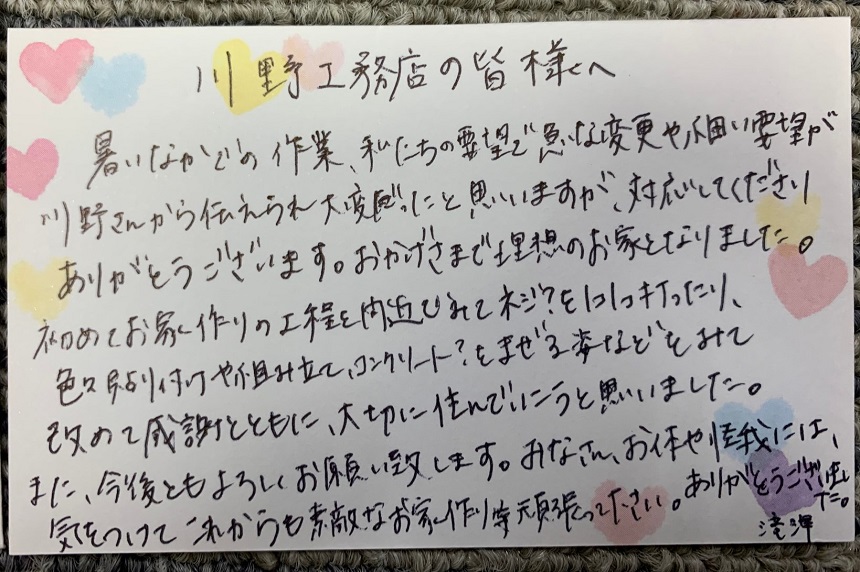 川野工務店の皆様へ
暑いなかでの作業、私たちの要望で急な変更や細い要望が
川野さんから伝えられ大変だったと思いますが、対応してくださり
ありがとうございます。おかげさまで理想のお家となりました。
初めてお家作りの工程を間近でみてネジ?を1コ1コ打ったり、
色々貼り付けや組み立て、コンクリート?をまぜる姿などをみて
改めて感謝とともに、大切に住んでいこうと思いました。
また、今後ともよろしくお願い致します。みなさん、お体や怪我には、
気をつけてこれからも素敵なお家作り等頑張って下さい。ありがとうございました。